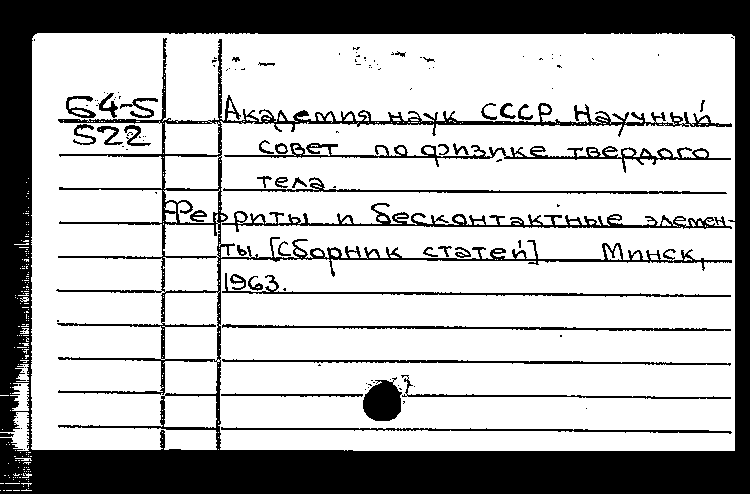 Б4-5 Академия наук СССР. Научный
522 совет по физике твердого
тела.
Ферриты и бесконтактные элемен-
ты. [Сборник статей] Минск,
1963.